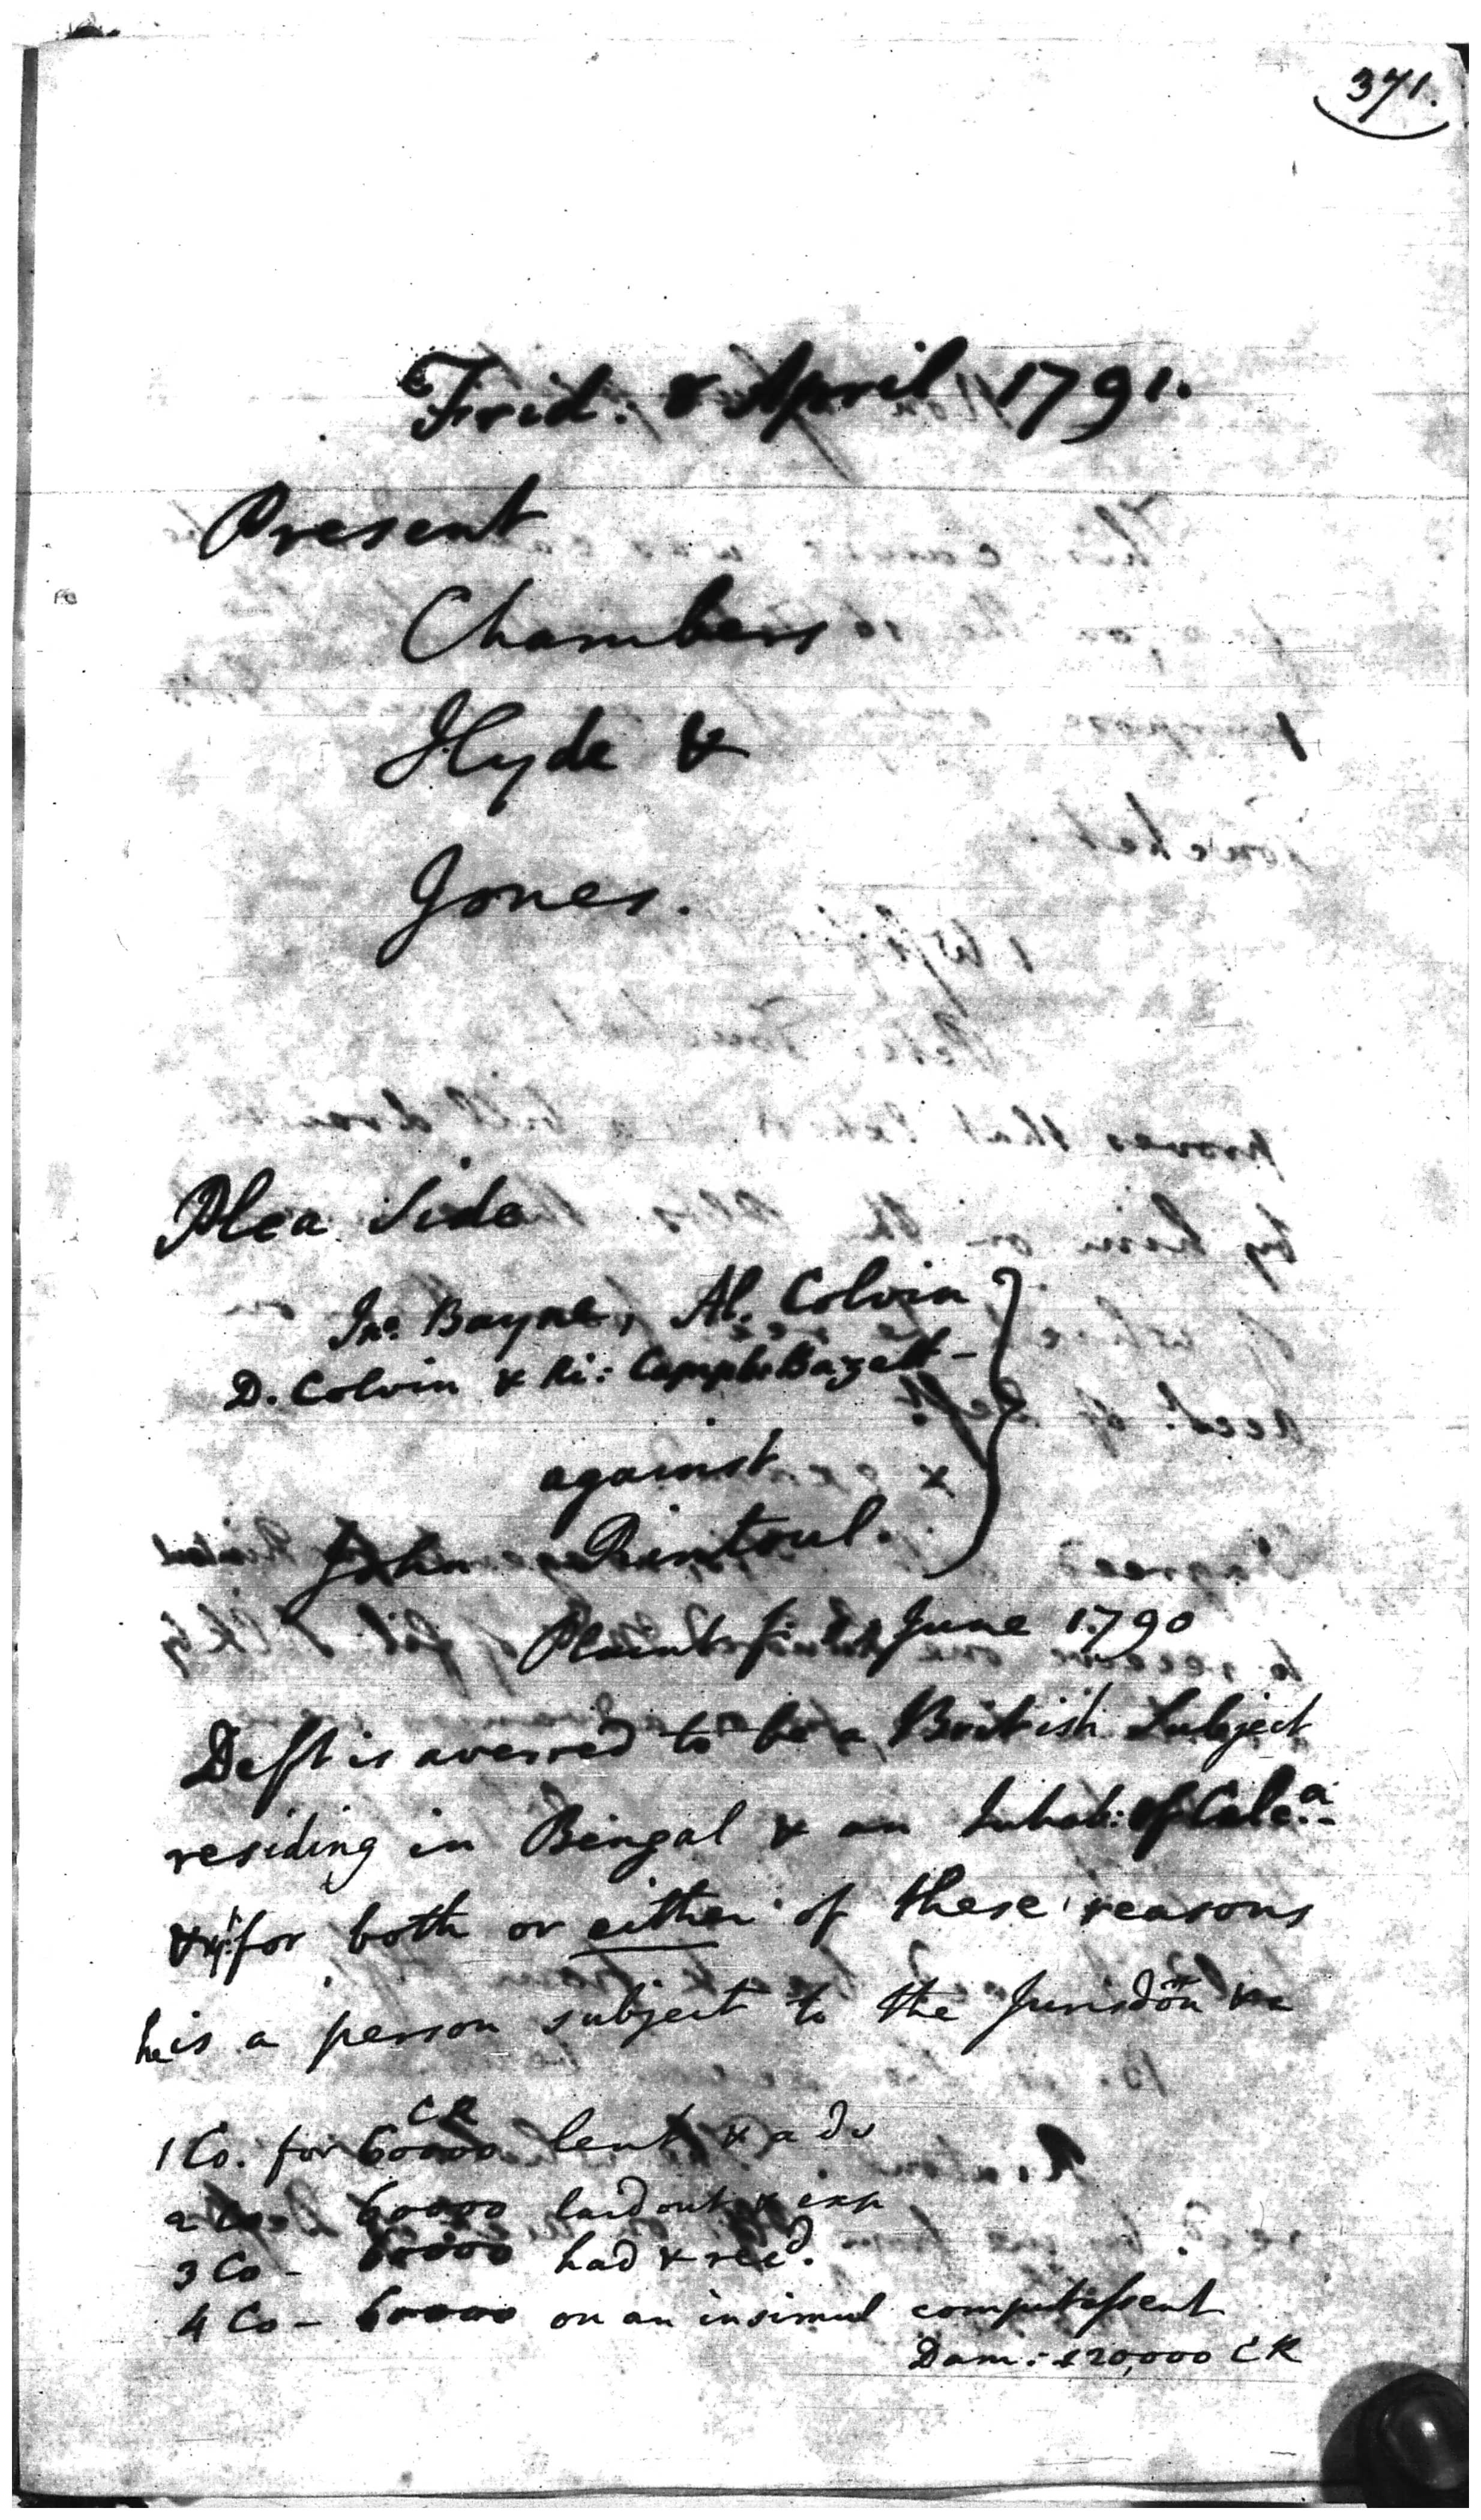 371.
Frid: 8 April 1791.
Present
Chambers
Hyde &
Jones.
Plea Side
Jno. Bayne, Al. Colvin
D. Colvin & Ri: Campb: Bazett -
against
John Rintoul.
Plaint f: June 1790
Deft is averred to be a British Subject
residing in Bengal & an Inhab: of Calca.
& yt for both or either of these reasons
he is a person subject to the Jurisdon &c
CR
1 Co. for 60000 lent & adv
2 Co. 60000 laid out & exp
3 Co - 60000 had & recd.
4 Co - 60000 on an insimul computassent
Dam: 120,000 CR